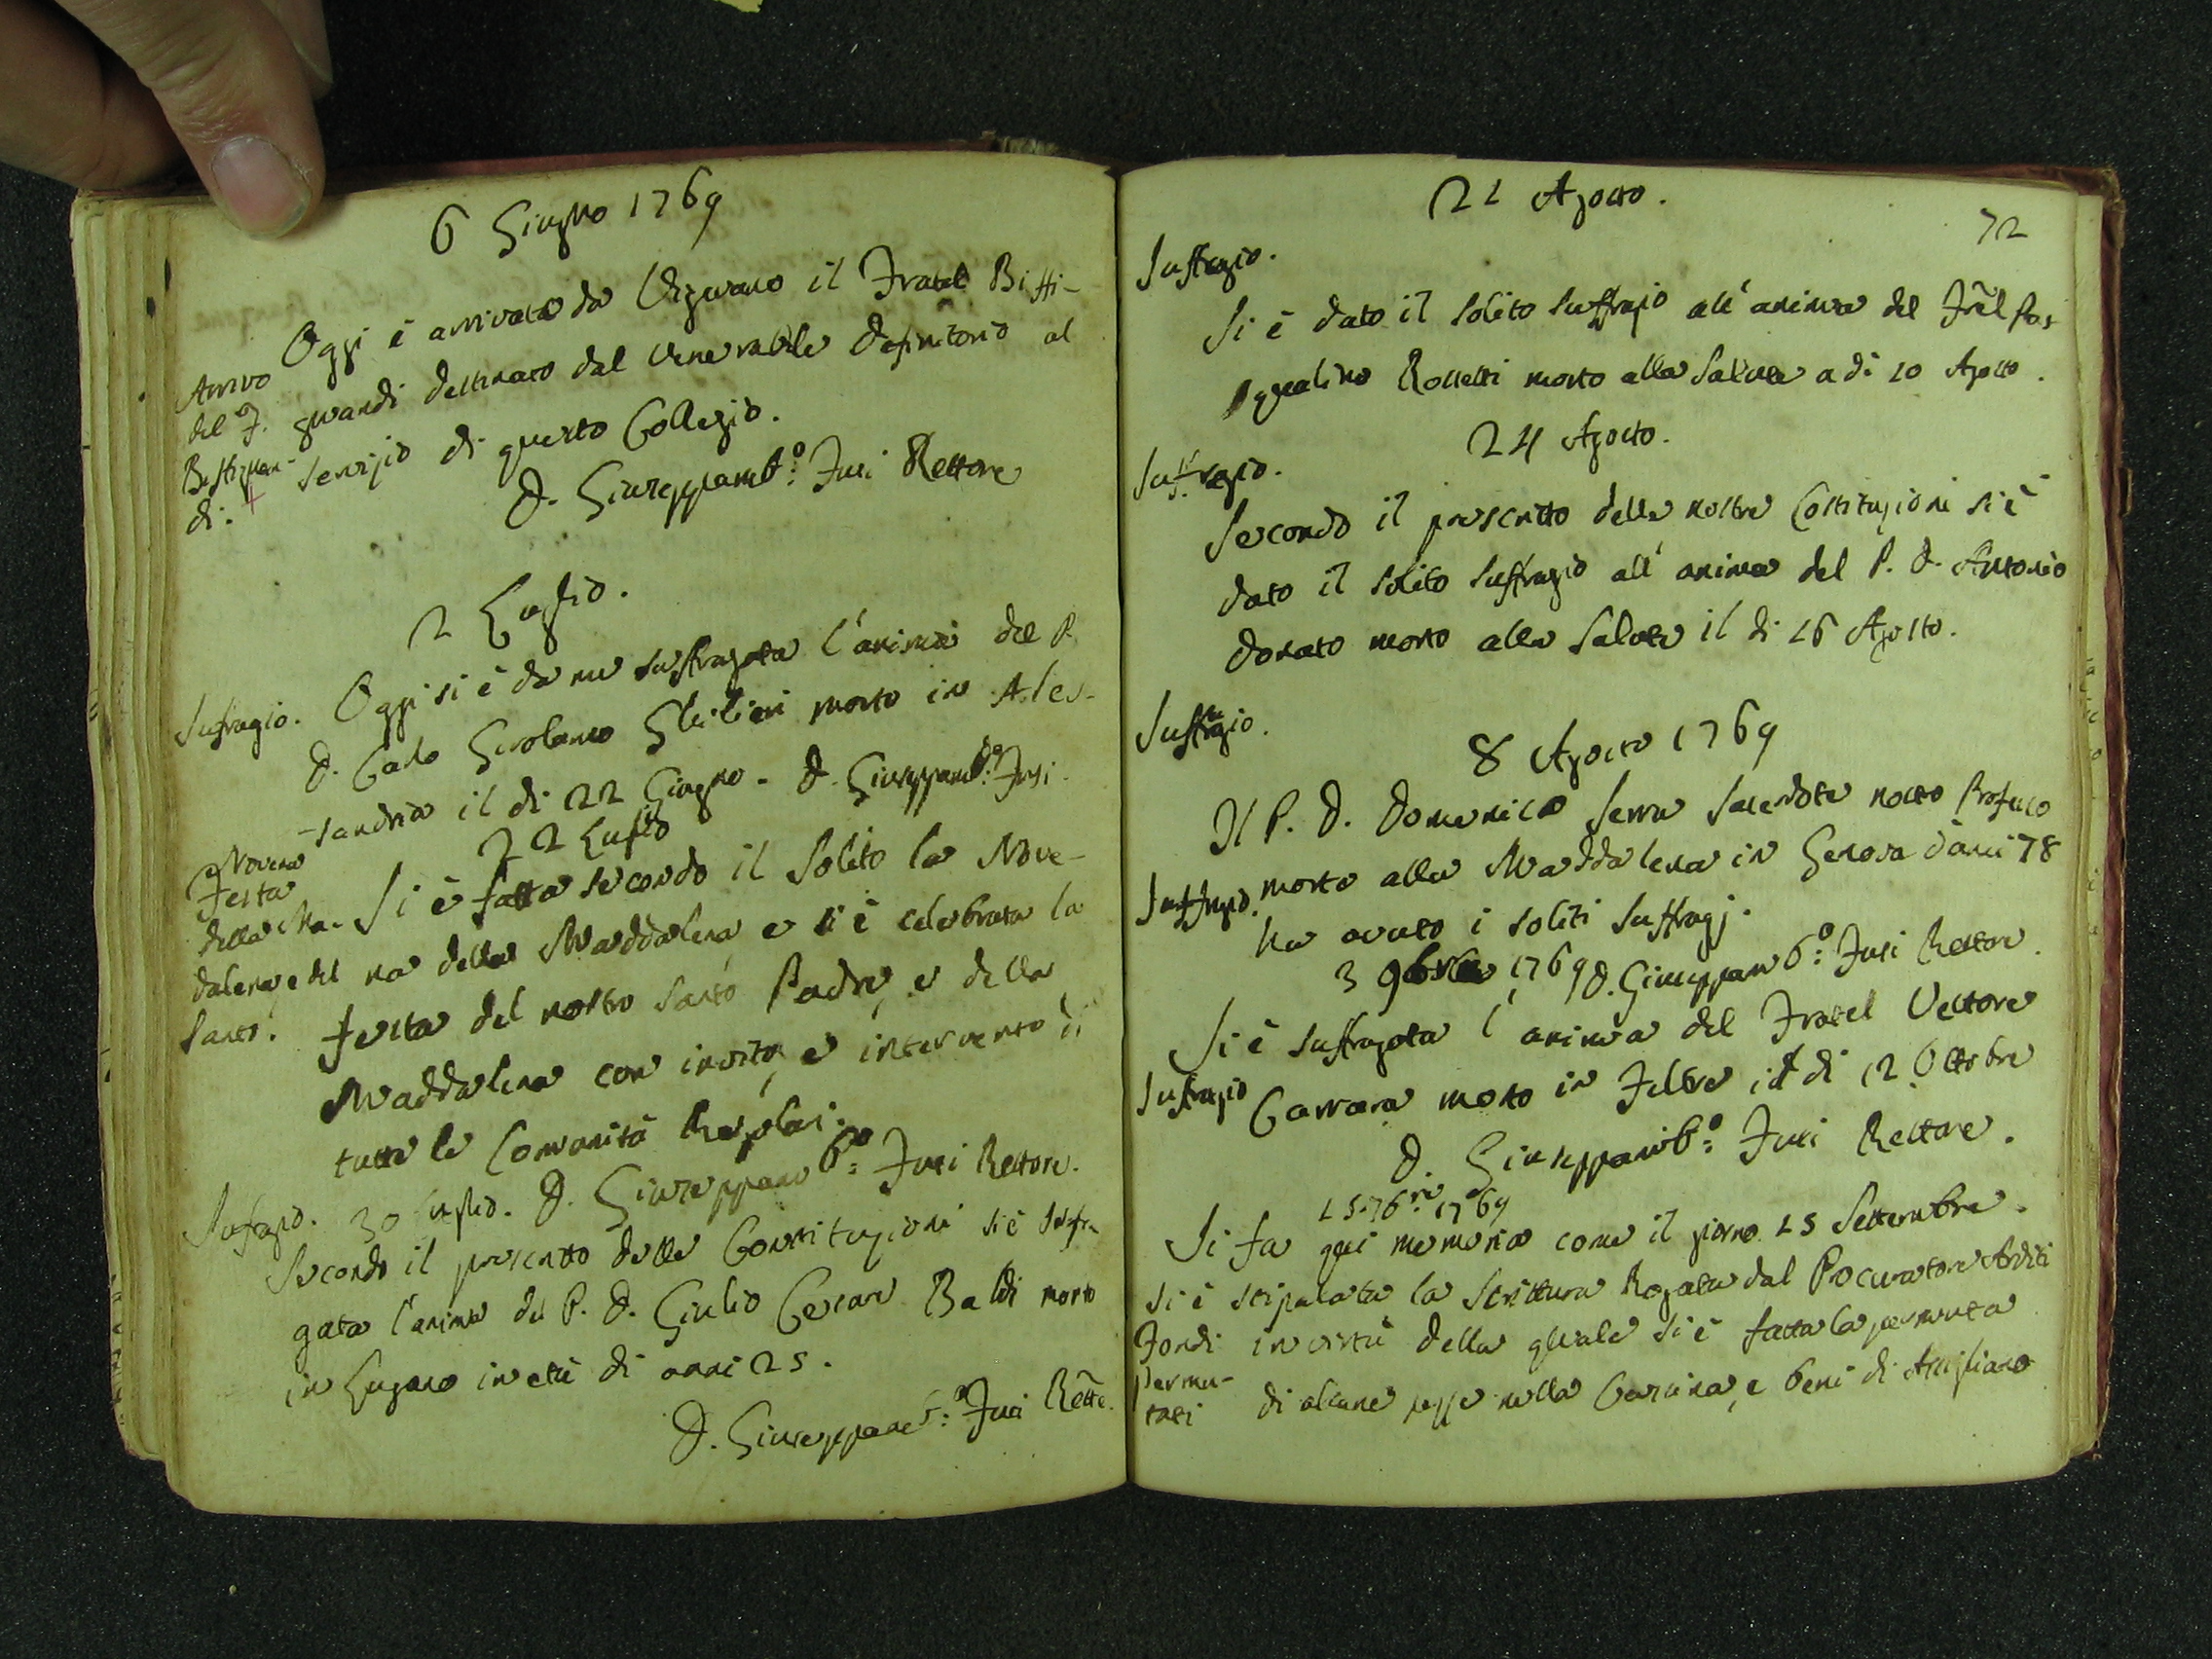 6 Giugno 1769
Oggi è arrivato da Vigevano il Fratel Biffi-
Arrivo
del F. gnandi destinato dal Venerabile Definitorio al
Biffignan- servizio di questo Collegio.
di.
D. Giuseppamb.o Fusi Rettore
2 Luglio.
Suffragio. Oggi si è da noi suffragata l'anima del P.
D. Carlo Girolamo Ghilieri morto in Ales-
-sandria il di 22 Giugno - D. Giuseppamb.o Fusi.
22 Luglio
Novena
Festa
della Ma- Si è fatta secondo il Solito la Nove-
dalena e del na della Maddalena, e si è celebrata la
Santo. festa del nostro Santo Padre, e della
Maddalena con invito, e intervento di
tutte le Comunità Regolari.
Suffragio. 30 Luglio. D. Giuseppamb.o Fusi Rettore.
Secondo il prescritto delle Constituzioni si è suffra
gata l'anima del P. D. Giulio Cesare Baldi morto
in Lugano in età di anni 25.
D. Giuseppamb.o Fusi Rette.
21 Agosto.
72
Suffragio.
Si è dato il solito suffragio all'anima del Frel Pas
qualino Rossetti morto alla Salute a di 10 Agosto.
24 Agosto.
Suffragio.
Secondo il prescritto delle nostre Costituzioni si è
dato il solito suffragio all'anima del P. D. Antonio
Donato morto alla Salute il di 16 Agosto.
Suffragio.
8 Agosto 1769
Il P. D. Domenico Serra Sacerdote nostro Professo
Suffragio. morto alla Maddalena in Genova d'anni 78
ha avuto i soliti suffragj.
3 9bre 1769 D. Giuseppamb.o Fusi Rettore.
Si è suffragata l'anima del Fratel Vettore
Suffragio Carrara morto in Feltre il di 12 Ottobre
D. Giuseppamb.o Fusi Rettore.
15 7bre 1769
Si fa qui memoria come il giorno 15 Settembre.
si è stipulata la Scrittura Rogata dal Procuratore Arditi
Fondi in virtù della quale si è fatta la permuta
permu-
tati di alcune pezze nella Cascina, e beni di